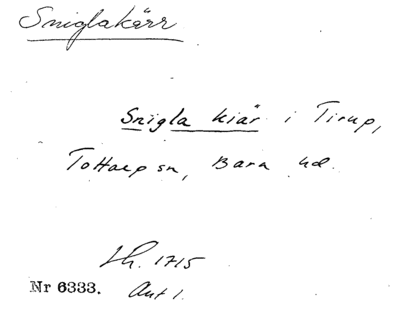 Sniglakärr
Snigla kiär i Tirup,
Tottarp sn, Bara hd.
Lh. 1715
Nr 6333. Akt 1.